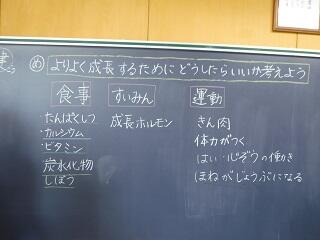 め よりよく成長するためにどうしたらいいか考えよう
食事
たんぱくしつ
・カルシウム
・ビタミン
炭水化物
しぼう
すいみん
成長ホルモン
運動
きん肉
体力がつく
はい・心ぞうの働き
ほねがじょうぶになる